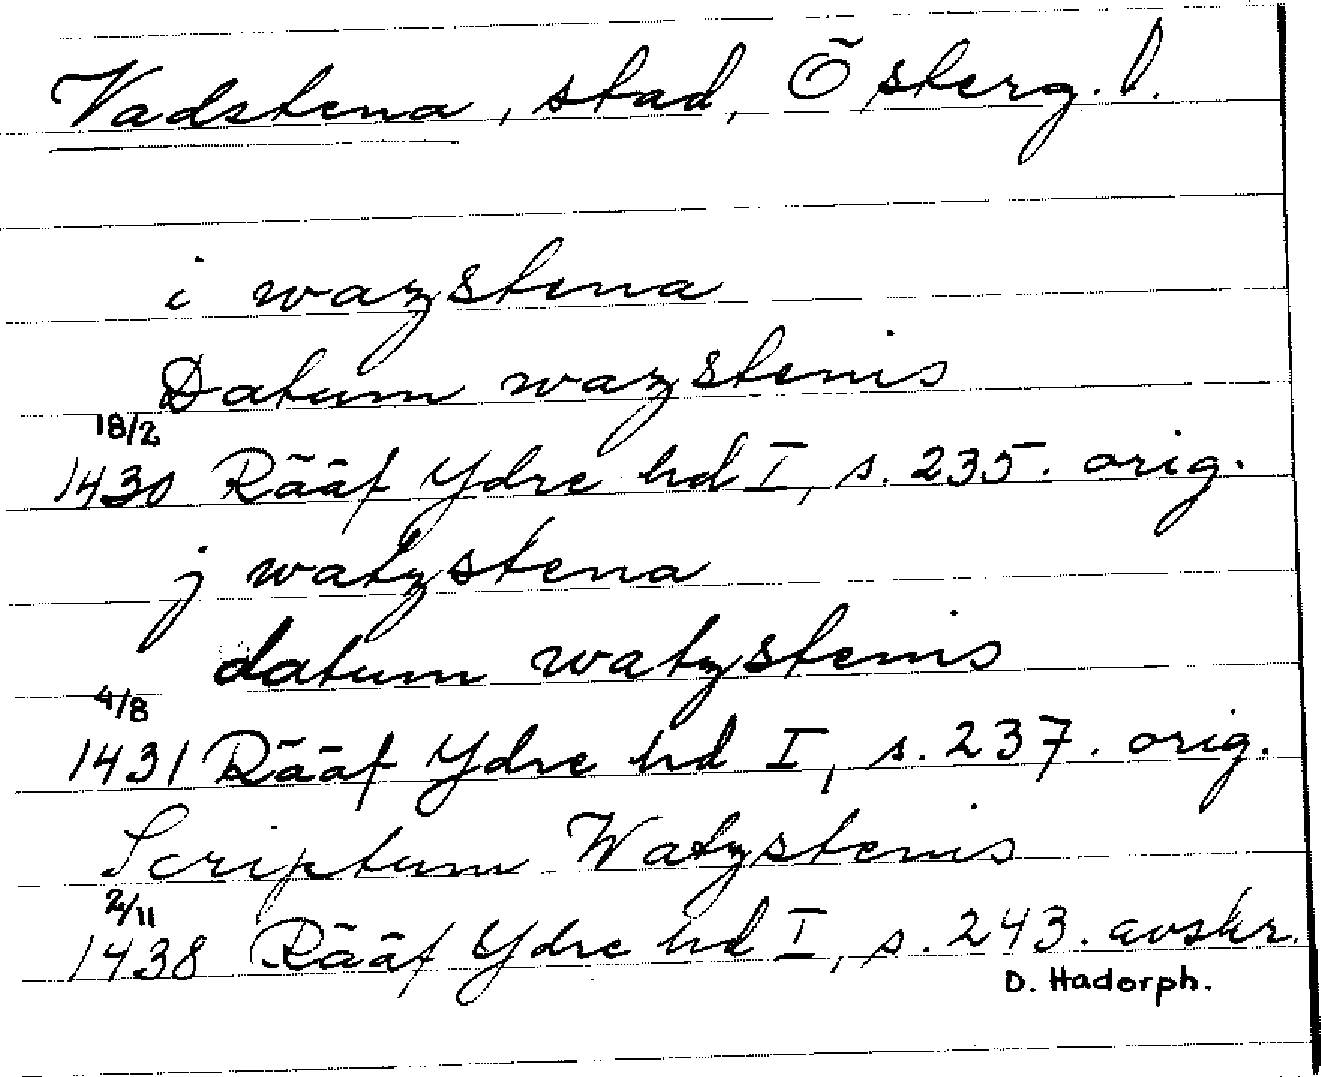 Vadstena, stad, Österg. l.
i wazstena
Datum wazstenis
18/2
1430 Rääf Ydre hd I, s. 235. orig.
j watzstena
datum watzstenis
4/8
1431 Rääf Ydre hd I, s. 237. orig.
Scriptum Watzstenis
2/11
1438 Rääf Ydre hd I, s. 243. avskr.
D. Hadorph.